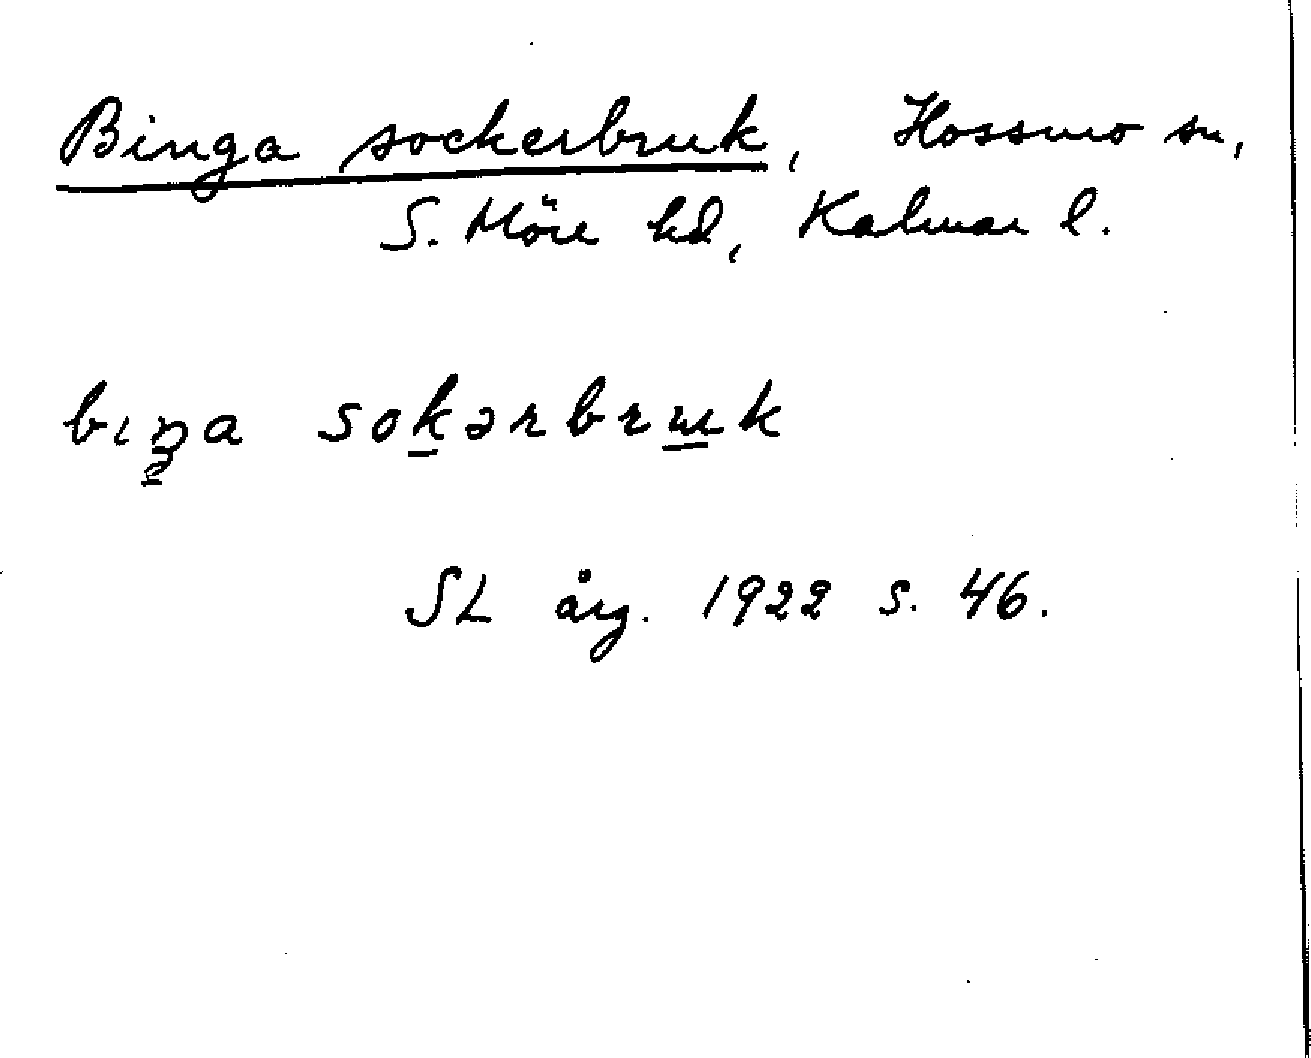 Binga sockerbruk, Hossmo sn,
S. Möre hd, Kalmar l.
bıŋa sokərbrɯk
SL årg. 1922 s. 46.